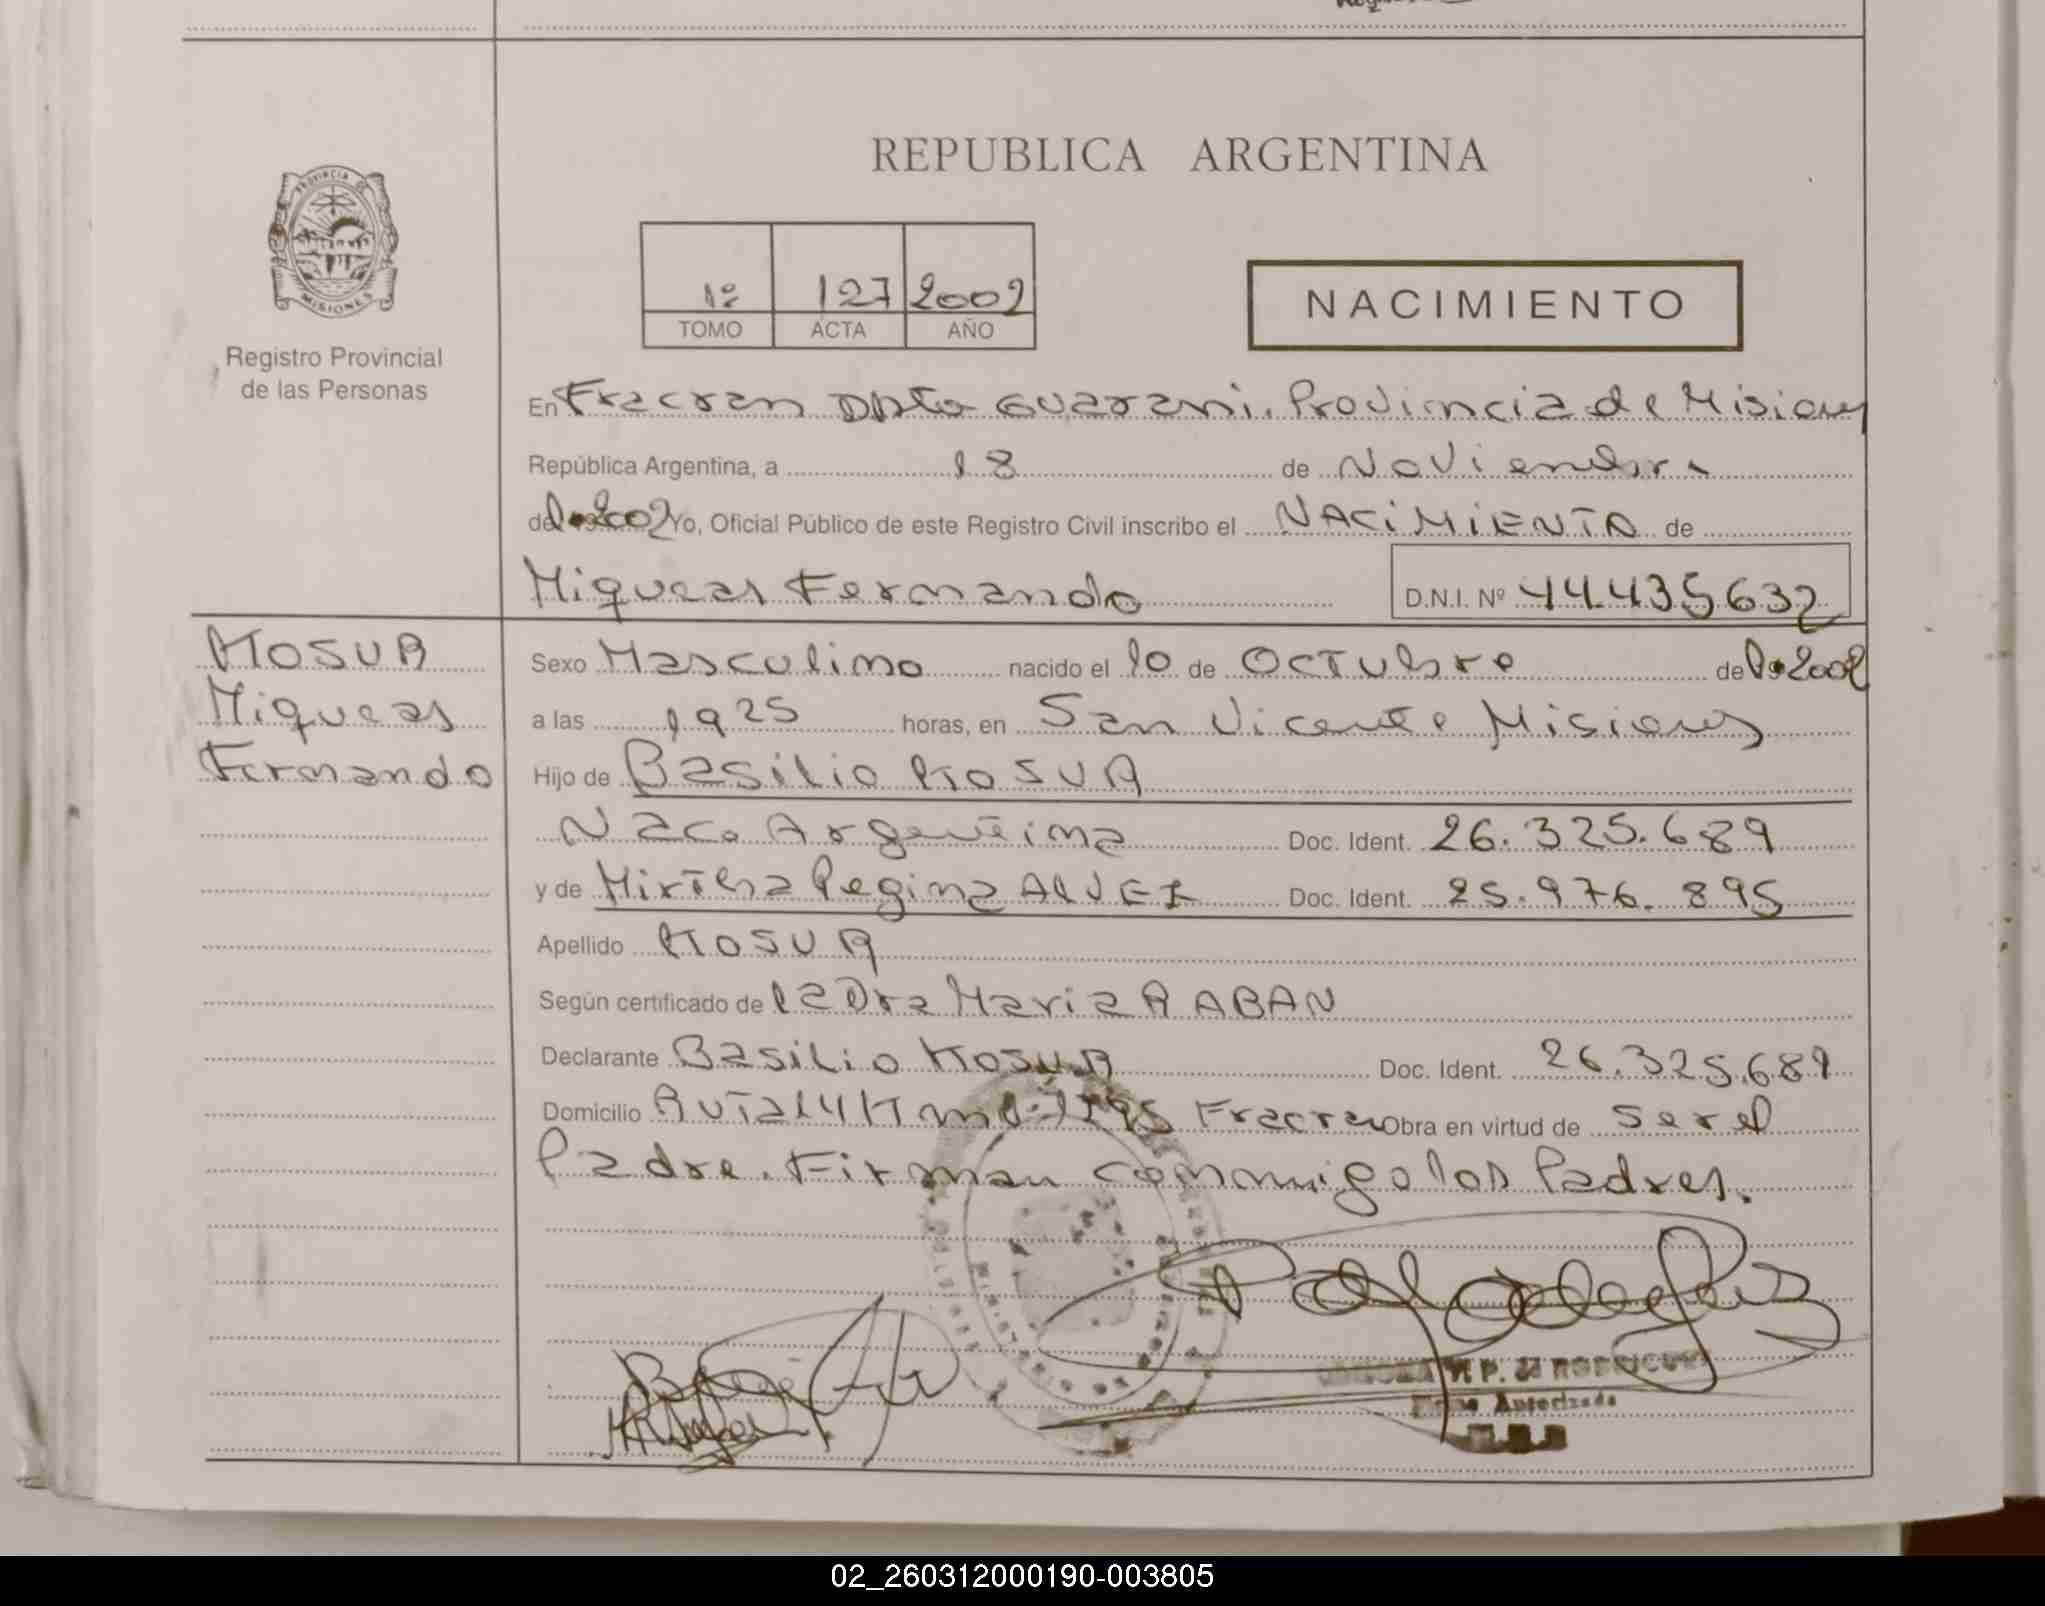 REPUBLICA ARGENTINA
PROVINCIA DE
MISIONES
Registro Provincial
de las Personas
1º 127 2002
TOMO ACTA AÑO
NACIMIENTO
En Fracran Dpto Guarani. Provincia de Misiones
República Argentina, a 18 de Noviembre
del 2002 Yo, Oficial Público de este Registro Civil inscribo el NACIMIENTO de
Miqueas Fernando D.N.I. Nº 44.435632
KOSUR
Miqueas
Fernando
Sexo Masculino nacido el 10 de Octubre de 2002
a las 1925 horas, en San Vicente Misiones
Hijo de Basilio KOSUR
Nac. Argentina Doc. Ident. 26.325.689
y de Mirtha Regina ALVEZ Doc. Ident. 25.976.895
Apellido KOSUR
Según certificado de la Dra Maria R ABAN
Declarante Basilio KOSUR Doc. Ident. 26.325.689
Domicilio Ruta 14 Km Fracran Obra en virtud de ser el
Padre. Firman conmigo los Padres.
M P. de RODRIGUEZ
Firma Autorizada
02_260312000190-003805